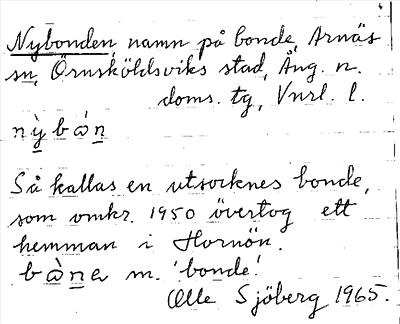 Nybonden, namn på bonde, Arnäs
sn, Örnsköldsviks stad, Ång. n.
doms. tg, Vnrl. l.
nỳ̲bὠn̲
Så kallas en utsocknes bonde,
som omkr. 1950 övertog ett
hemman i Hornön.
bὼn̲a m. 'bonde'.
Olle Sjöberg 1965.